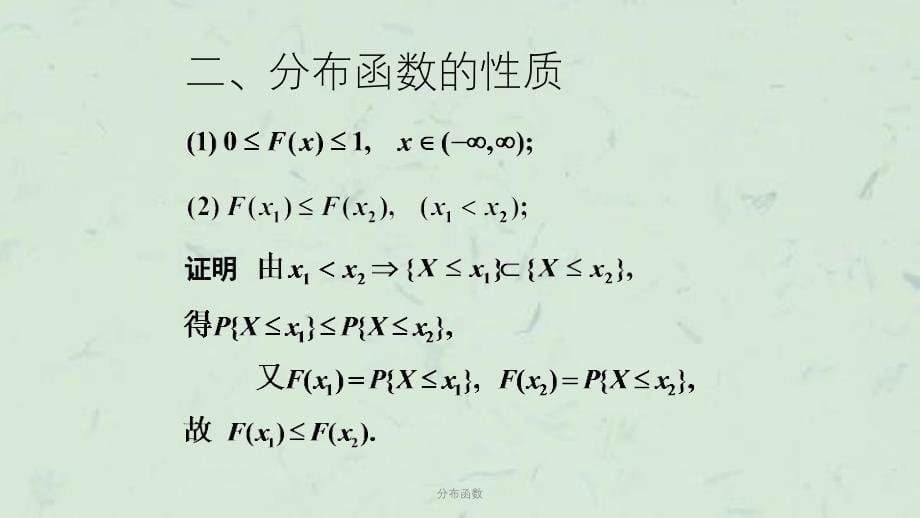 二、分布函数的性质
(1) 0 ≤ F(x) ≤ 1, x ∈ (−∞,∞);
(2) F(x₁) ≤ F(x₂), (x₁ < x₂);
证明 由 x₁ < x₂ ⇒ {X ≤ x₁} ⊂ {X ≤ x₂},
得 P{X ≤ x₁} ≤ P{X ≤ x₂},
又 F(x₁) = P{X ≤ x₁}, F(x₂) = P{X ≤ x₂},
故 F(x₁) ≤ F(x₂).
分布函数